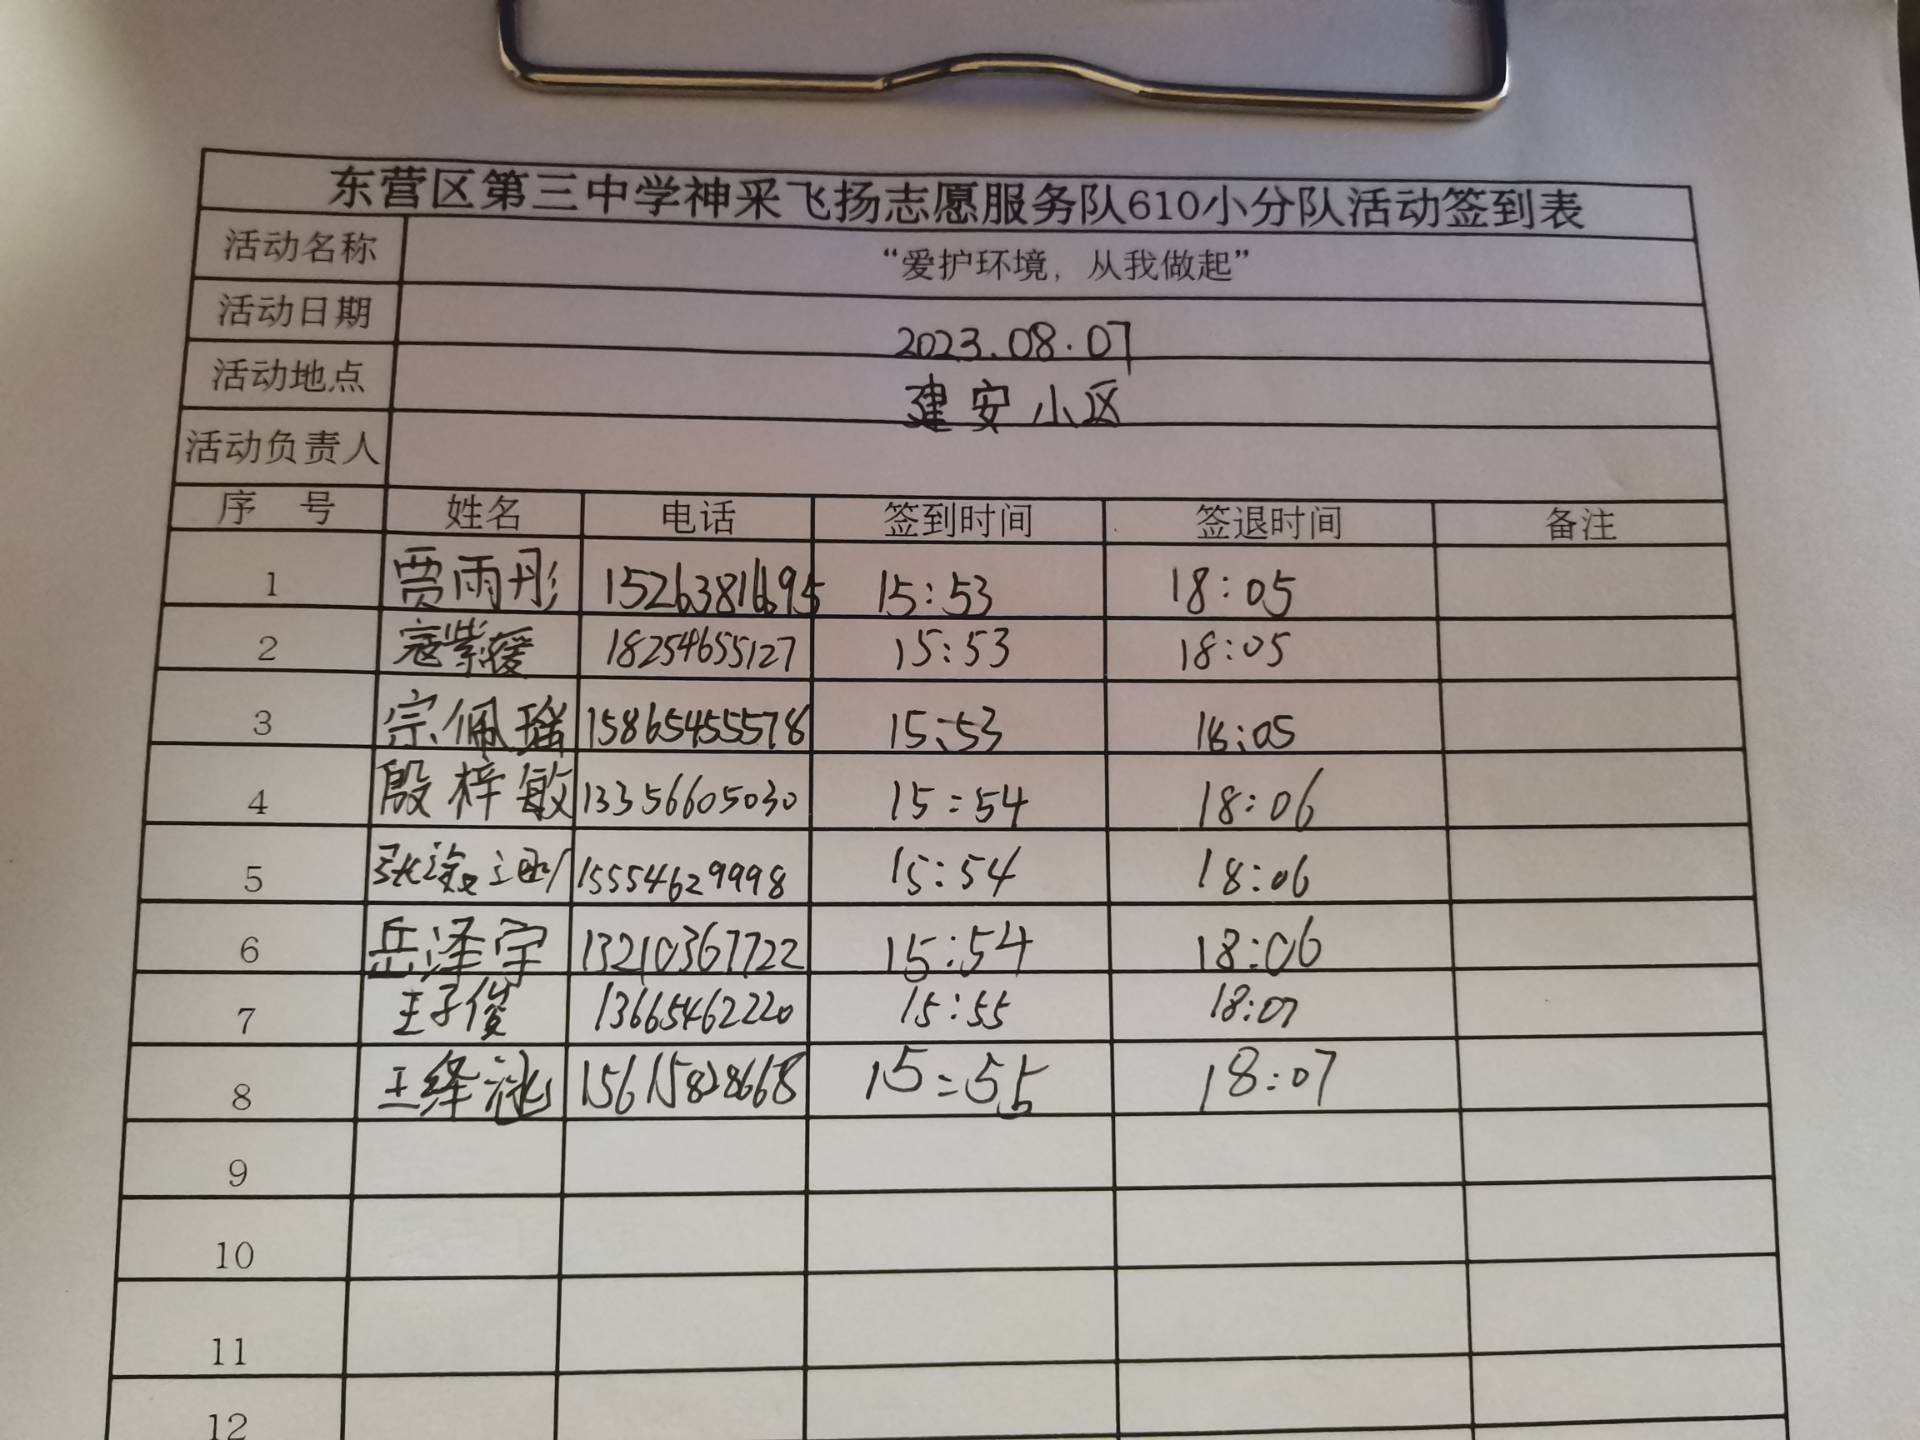 东营区第三中学神采飞扬志愿服务队610小分队活动签到表
活动名称 “爱护环境，从我做起”
活动日期 2023.08.07
活动地点 建安小区
活动负责人
序 号 姓名 电话 签到时间 签退时间 备注
1 贾雨彤 15263816695 15:53 18:05
2 寇紫媛 18254655127 15:53 18:05
3 宗佩瑶 15865455578 15:53 18:05
4 殷梓敏 13356605030 15:54 18:06
5 张 15554629998 15:54 18:06
6 岳泽宇 13210367722 15:54 18:06
7 王子俊 13665462220 15:55 18:07
8 王绎泓 15615828668 15:55 18:07
9
10
11
12